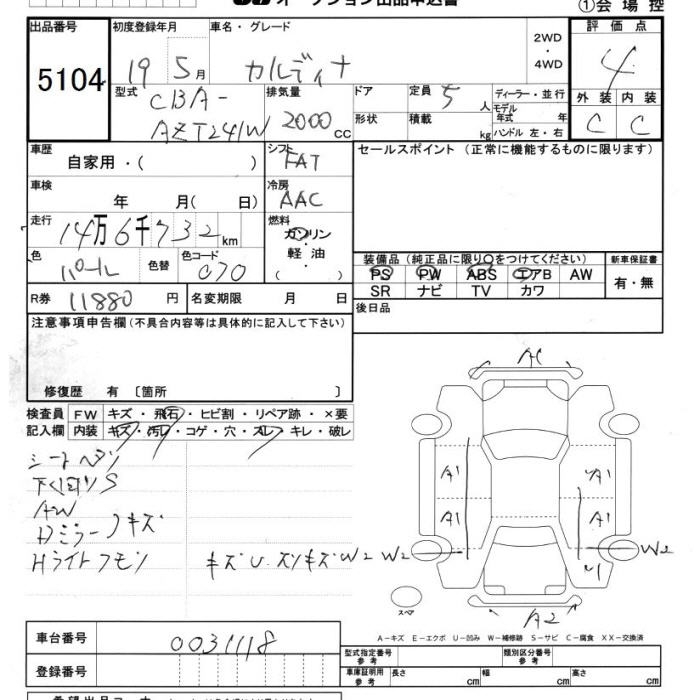 オークション出品申込書
①会場控
出品番号
5104
初度登録年月
19 5月
車名・グレード
カルディナ
2WD
・
4WD
評価点
4
型式
CBA-
AZT241W
排気量
2000 cc
ドア
定員
5人
ディーラー・並行
モデル年式 年
形状
積載 kg
ハンドル 左・右
外装
内装
C
C
車歴
自家用・( )
シフト
FAT
セールスポイント (正常に機能するものに限ります)
車検
年 月( 日)
冷房
AAC
走行
14万6千732km
燃料
ガソリン
・
軽油
( )
色
パール
色替
色コード
070
装備品 (純正品に限り○をつけてください)
新車保証書
PS PW ABS エアB AW
有・無
SR ナビ TV カワ
R券
11880円
名変期限 月 日
後日品
注意事項申告欄(不具合内容等は具体的に記入して下さい)
修復歴 有 〔箇所 〕
検査員
記入欄
FW
キズ・飛石・ヒビ割・リペア跡・×要
内装
キズ・汚レ・コゲ・穴・スレ・キレ・破レ
シートヘタリ
下くぼりS
AW
Dミラーキズ
Hライトクモリ
キズU.ズリキズW2
A1
A1
A1
A1
A1
W2
W2
A2
スペア
A-キズ E-エクボ U-凹み W-補修跡 S-サビ C-腐食 XX-交換済
車台番号
0031118
登録番号
型式指定番号
参考
類別区分番号
参考
車庫証明用
参考
長さ cm
幅 cm
高さ cm